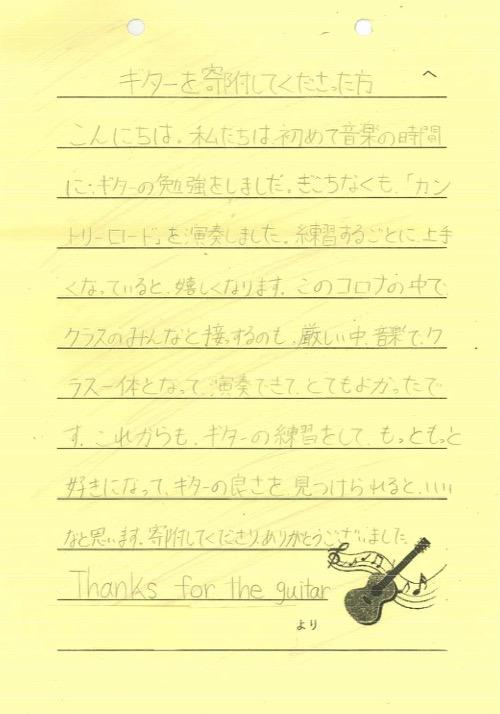 ギターを寄附してくださった方 へ
こんにちは。私たちは、初めて音楽の時間
に、ギターの勉強をしました。ぎこちなくも、「カン
トリーロード」を演奏しました。練習するごとに、上手
くなっていると、嬉しくなります。このコロナの中で
クラスのみんなと接するのも、厳しい中、音楽で、ク
ラス一体となって、演奏できて、とてもよかったで
す。これからも、ギターの練習をして、もっともっと
好きになって、ギターの良さを、見つけられると、いい
なと思います。寄附してくださり、ありがとうございました。
Thanks for the guitar
より